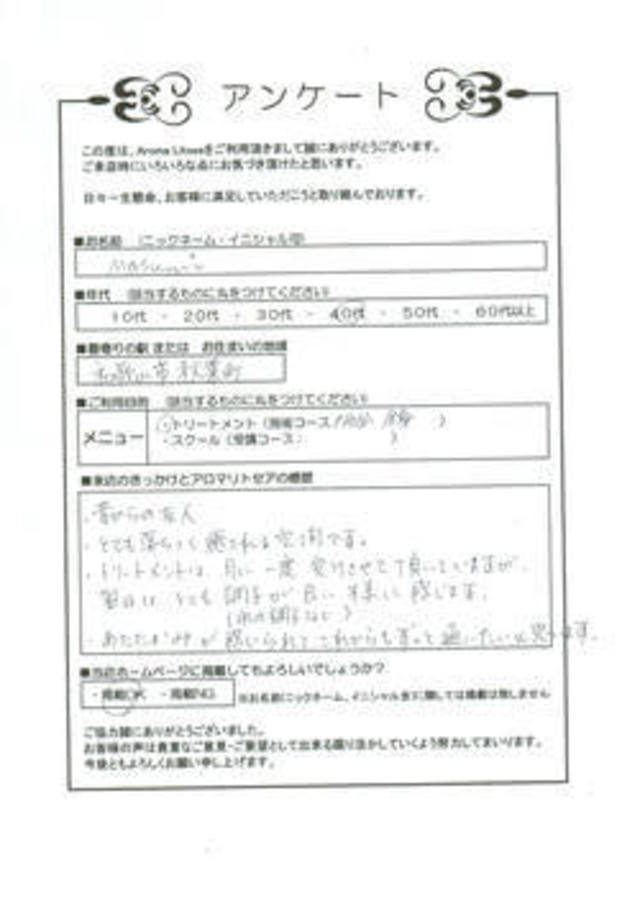 アンケート
この度は、Aroma Litseaをご利用頂きまして誠にありがとうございます。
ご来店時にいろいろな点にお気づき頂けたと思います。
日々一生懸命、お客様に満足していただこうと取り組んでおります。
■お名前 (ニックネーム・イニシャル可)
■年代 (該当するものに丸をつけてください)
10代 ・ 20代 ・ 30代 ・ 40代 ・ 50代 ・ 60代以上
■最寄りの駅 または お住まいの地域
市 秋葉町
■ご利用目的 (該当するものに丸をつけてください)
メニュー
・トリートメント (施術コース )
・スクール (受講コース: )
■来店のきっかけとアロマリトセアの感想
・昔からの友人
・とても落ちつく癒される空間です。
・トリートメントは、月に一度 受けさせて頂いていますが、
翌日は とても 調子が 良い 様に 感じます。
(体の調子など)
・あたたかみが 感じられて これからもずっと 通いたいと思います。
■当店ホームページに掲載してもよろしいでしょうか?
・掲載OK ・掲載NG ※お名前(ニックネーム、イニシャル含)に関しては掲載は致しません
ご協力誠にありがとうございました。
お客様の声は貴重なご意見・ご要望として出来る限り活かしていくよう努力してまいります。
今後ともよろしくお願い申し上げます。